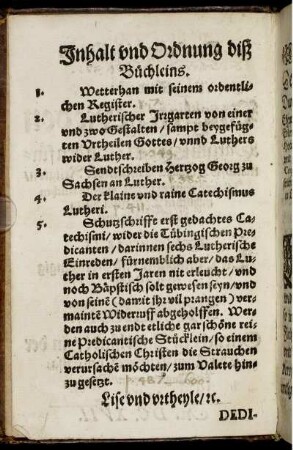 Inhalt vnd Ordnung diß
Büchleins.
1. Wetterhan mit seinem ordentli-
chen Register.
2. Lutherischer Irrgarten von einer
vnd zwo Gestalten / sampt beygefüg-
ten Vrtheilen Gottes / vnnd Luthers
wider Luther.
3. Sendtschreiben Hertzog Georg zu
Sachsen an Luther.
4. Der klaine vnd raine Catechismus
Lutheri.
5. Schutzschrifft erst gedachtes Ca-
techismi / wider die Tübingischen Pre-
dicanten / darinnen sechs Lutherische
Einreden / fürnemblich aber / das Lu-
ther in ersten Jaren nit erleucht / vnd
noch Bäpstisch solt gewesen seyn / vnd
von seinē (damit ihr vil prangen) ver-
maintē Widerruff abgeholffen. Wer-
den auch zu end etliche gar schöne rei-
ne Predicantische Stücklein / so einem
Catholischen Christen die Strauchen
verursachē möchten / zum Valete hin-
zu gesetzt.
Lise vnd vrtheyle / ꝛc.
DEDI-